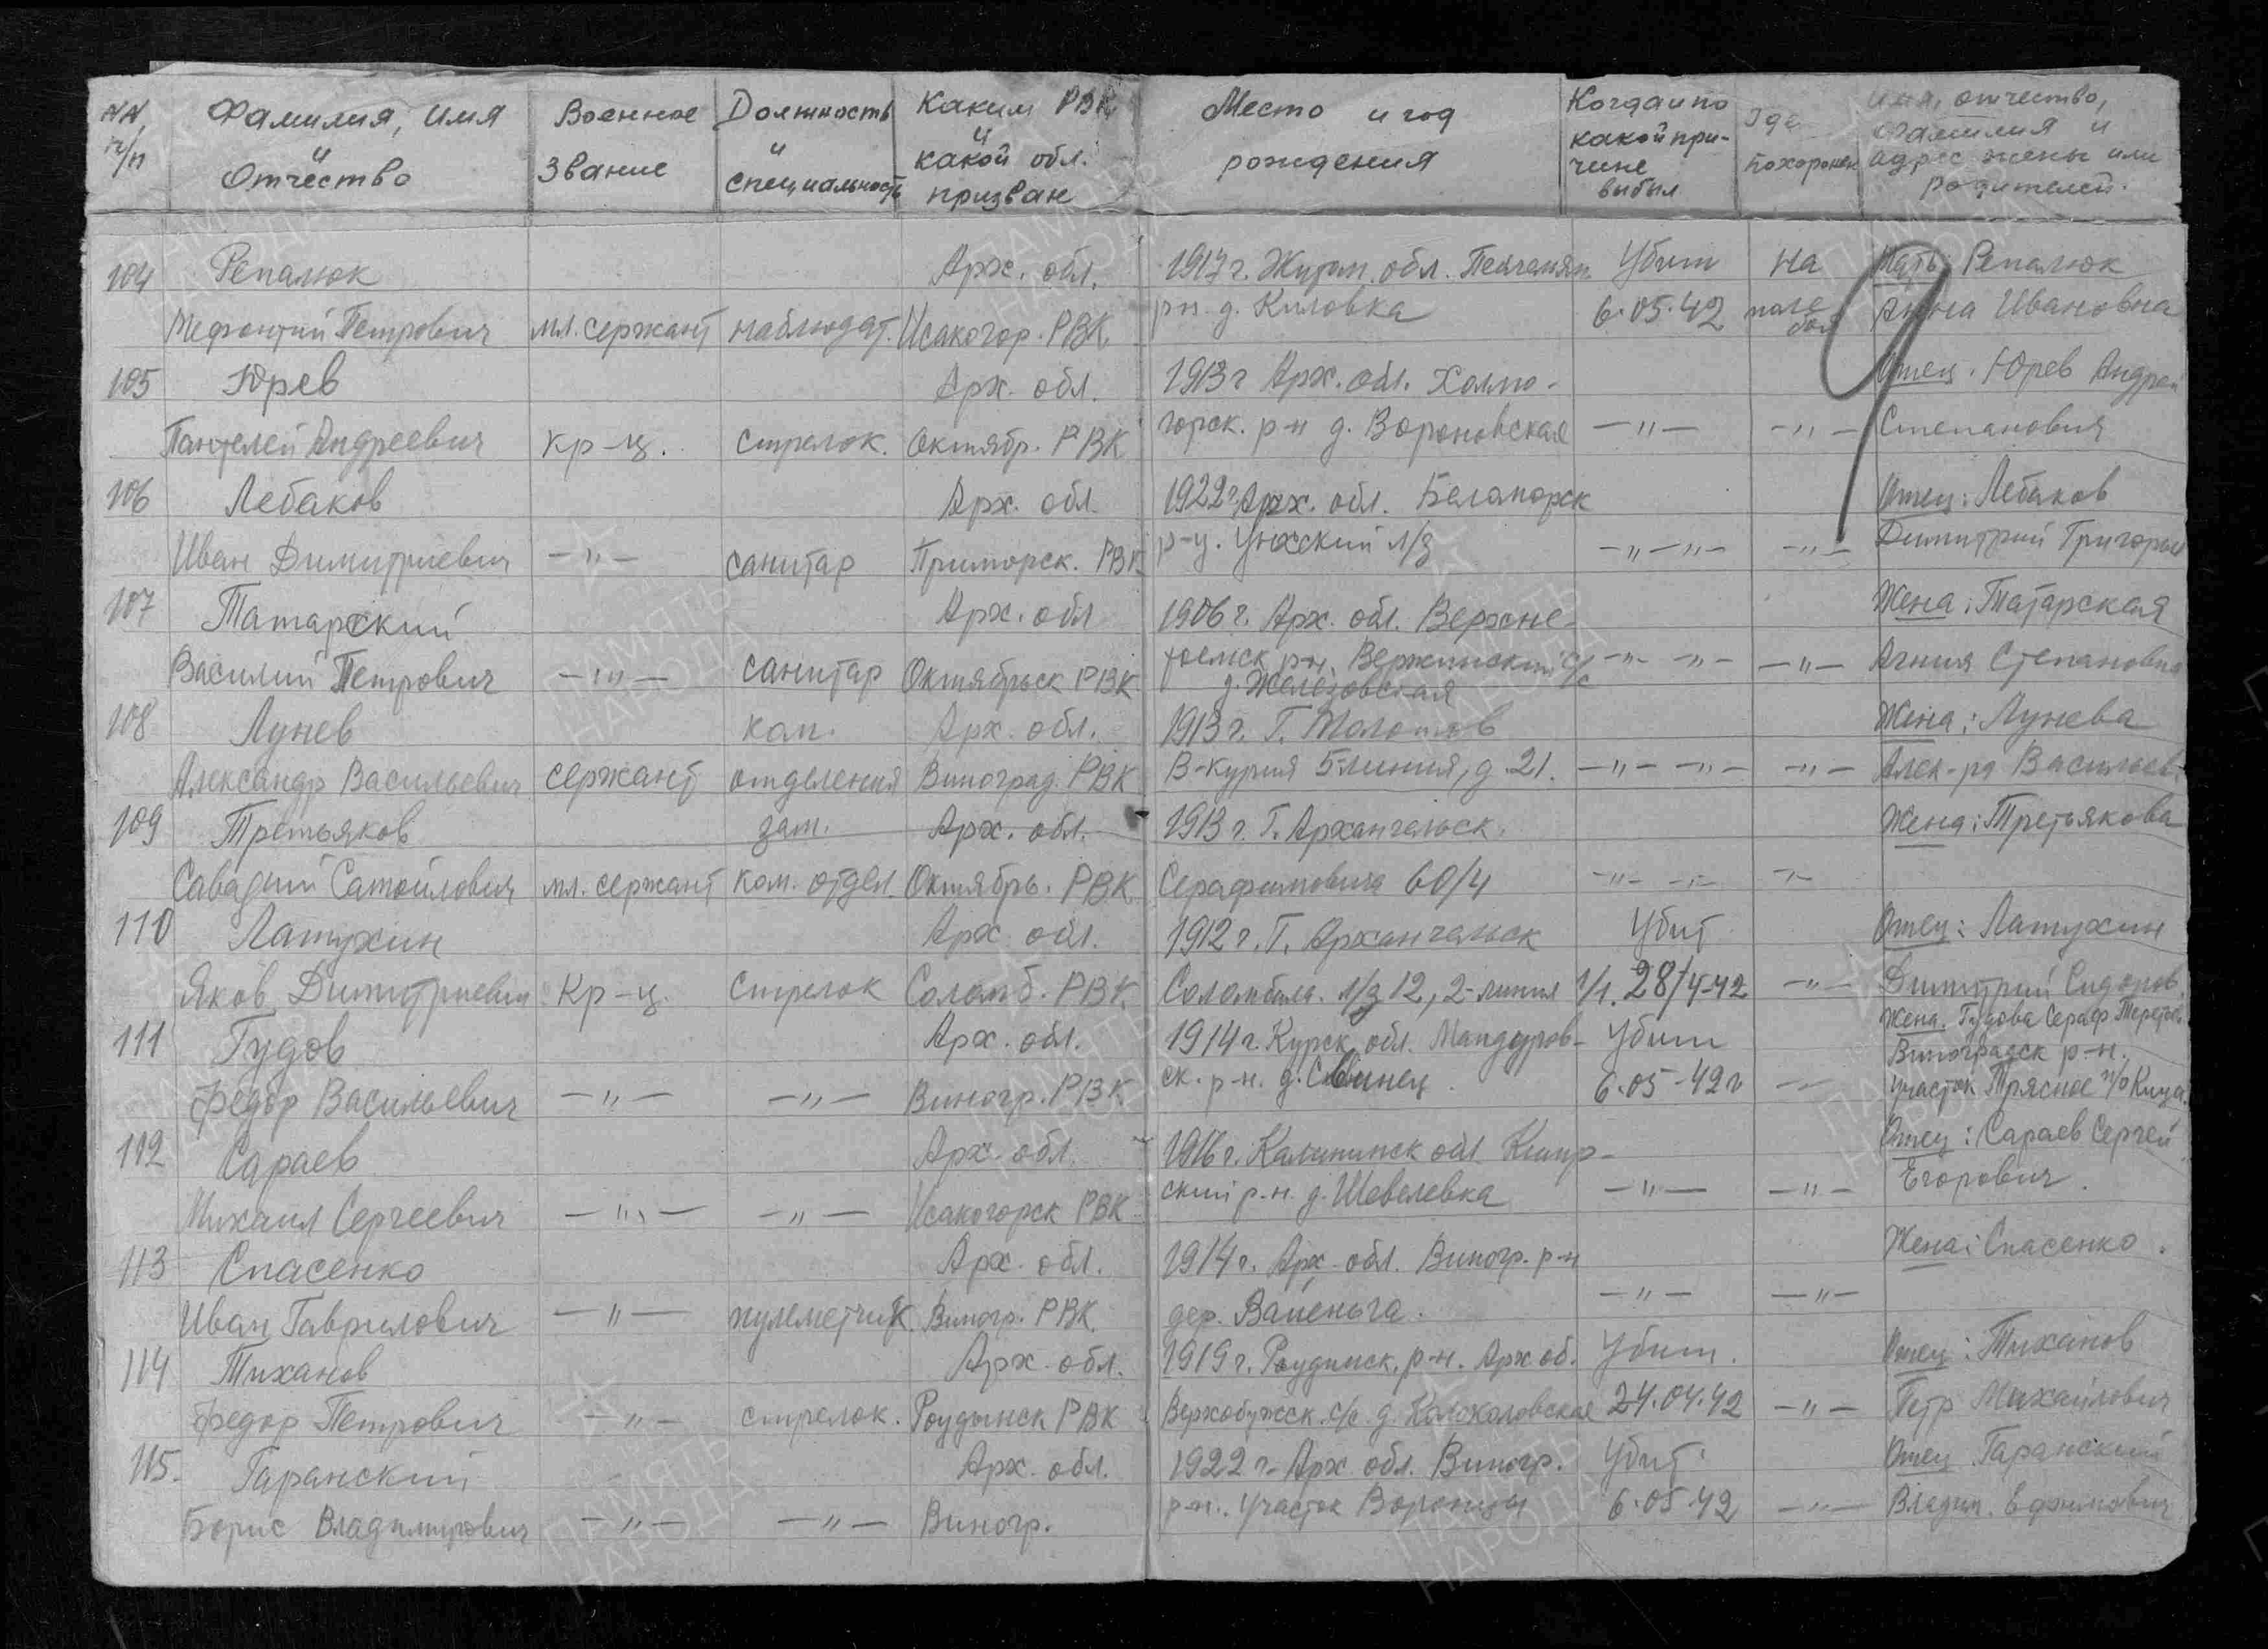 NN п/п
Фамилия, имя и Отчество
Военное звание
Должность и специальность
Каким РВК и какой обл. призван
Место и год рождения
Когда и по какой причине выбыл
Где похоронен
Имя, отчество, фамилия и адрес жены или родителей.
104 Репалюк Арх. обл. 1917 г. Житом. обл. Убит На Мать Репалюк
Петрович мл. сержант наблюдат. Исакогор. РВК. р-н. д. Киловка 6.05.42 поле боя Анна Ивановна
105 Юрев Арх. обл. 1913 г Арх. обл. Холмо- Отец. Юрев Андрей
Пантелей Андреевич кр-ц. стрелок. Октябр. РВК горск. р-н д. Вороновская —"— —"— Степанович
106 Лебаков Арх. обл. 1922 г. Арх. обл. Беломорск Отец: Лебаков
Иван Димитриевич —"— санитар Приморск. РВК р-ц. л/з —"—"— —"— Димитрий Григорьев
107 Татарский Арх. обл 1906 г. Арх. обл. Верхне- Жена: Татарская
Василий Петрович —"— санитар Октябрьск РВК тоемск р-н. Вержинский с/с —"— —"— —"— Агния Степановна
д. Железовская
108 Лунев ком. Арх. обл. 1913 г. Г. Молотов Жена: Лунева
Александр Васильевич сержант отделения Виноград. РВК В-курия 5-линия, д. 21. —"— —"— —"— Алек-ра Васильев.
109 Третьяков зам. Арх. обл. 1913 г. Г. Архангельск. Жена: Третьякова
Савадий Самойлович мл. сержант ком. отдел. Октябрь. РВК Серафимовича 60/4 —"— —"— —"—
110 Латухин Арх обл. 1912 г. Г. Архангельск Убит Отец: Латухин
Яков Димитриевич Кр-ц. Стрелок Соломб. РВК. Соломбала. л/з 12, 2-линия 28/4-42 —"— Димитрий Сидоров.
111 Гудов Арх. обл. 1914 г. Курск. обл. Мандуров- Убит Жена. Гудова Сераф.
Виноградск р-н.
Федор Васильевич —"— —"— Виногр. РВК. ск. р-н. д. 6.05-42 г —"— участок Трясное п/о Кица.
112 Сараев Арх. обл. 1916 г. Калининск обл Кимр- Отец: Сараев Сергей
Михаил Сергеевич —"— —"— Исакогорск РВК ский р-н. д. Шевелевка —"— —"— Егорович.
113 Спасенко Арх. обл. 1914 г. Арх. обл. Виногр. р-н Жена: Спасенко.
Иван Гаврилович —"— пулеметчик. Виногр. РВК. дер. Ваеньга. —"— —"—
114 Тиханов Арх. обл. 1919 г. Роудинск. р-н. Арх об. Убит. Отец: Тиханов
Федор Петрович —"— стрелок. Роудынск РВК с/с д. 24.04.42 —"— Петр Михайлович
115. Гаранский Арх. обл. 1922 г. Арх обл. Виногр. Убит. Отец Гаранский
Борис Владимирович —"— —"— Виногр. р-н. Участок Воронцы 6.05.42 —"— Владим. Ефимович